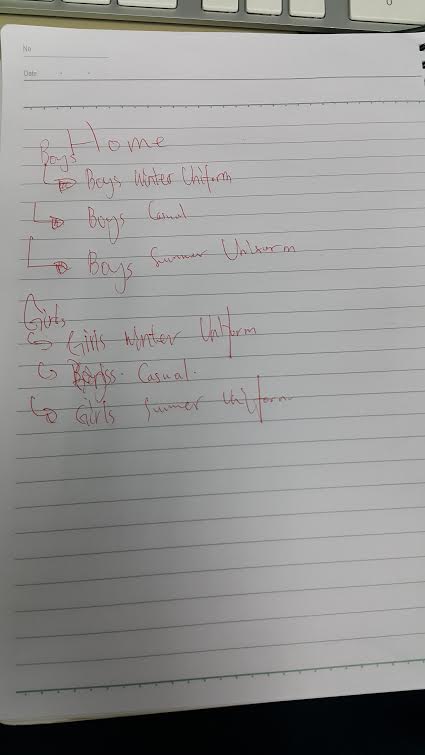 No
Date
Home
Boys
Boys Winter Uniform
Boys Casual
Boys Summer Uniform
Girls
Girls Winter Uniform
Casual.
Girls Summer Uniform